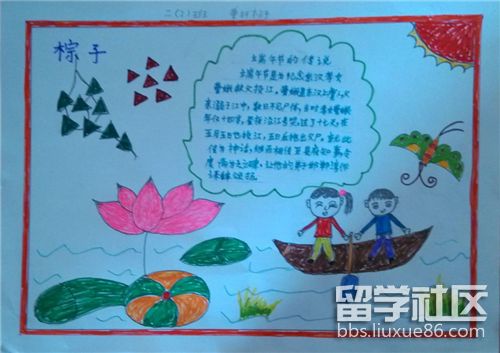 二(2)班
粽子
端午节的传说
端午节是为纪念东汉孝女
曹娥救父投江。曹娥是东汉上虞人,父
亲溺于江中,数日不见尸体,当时孝女曹娥
年仅十四岁,昼夜沿江号哭。过了十七天,在
五月五日也投江,五日后抱出父尸。就此
传为神话,继而相传至县府知事,令度
尚为之立碑,让他的弟子邯郸淳作
诔辞颂扬。
留学社区
bbs.liuxue86.com